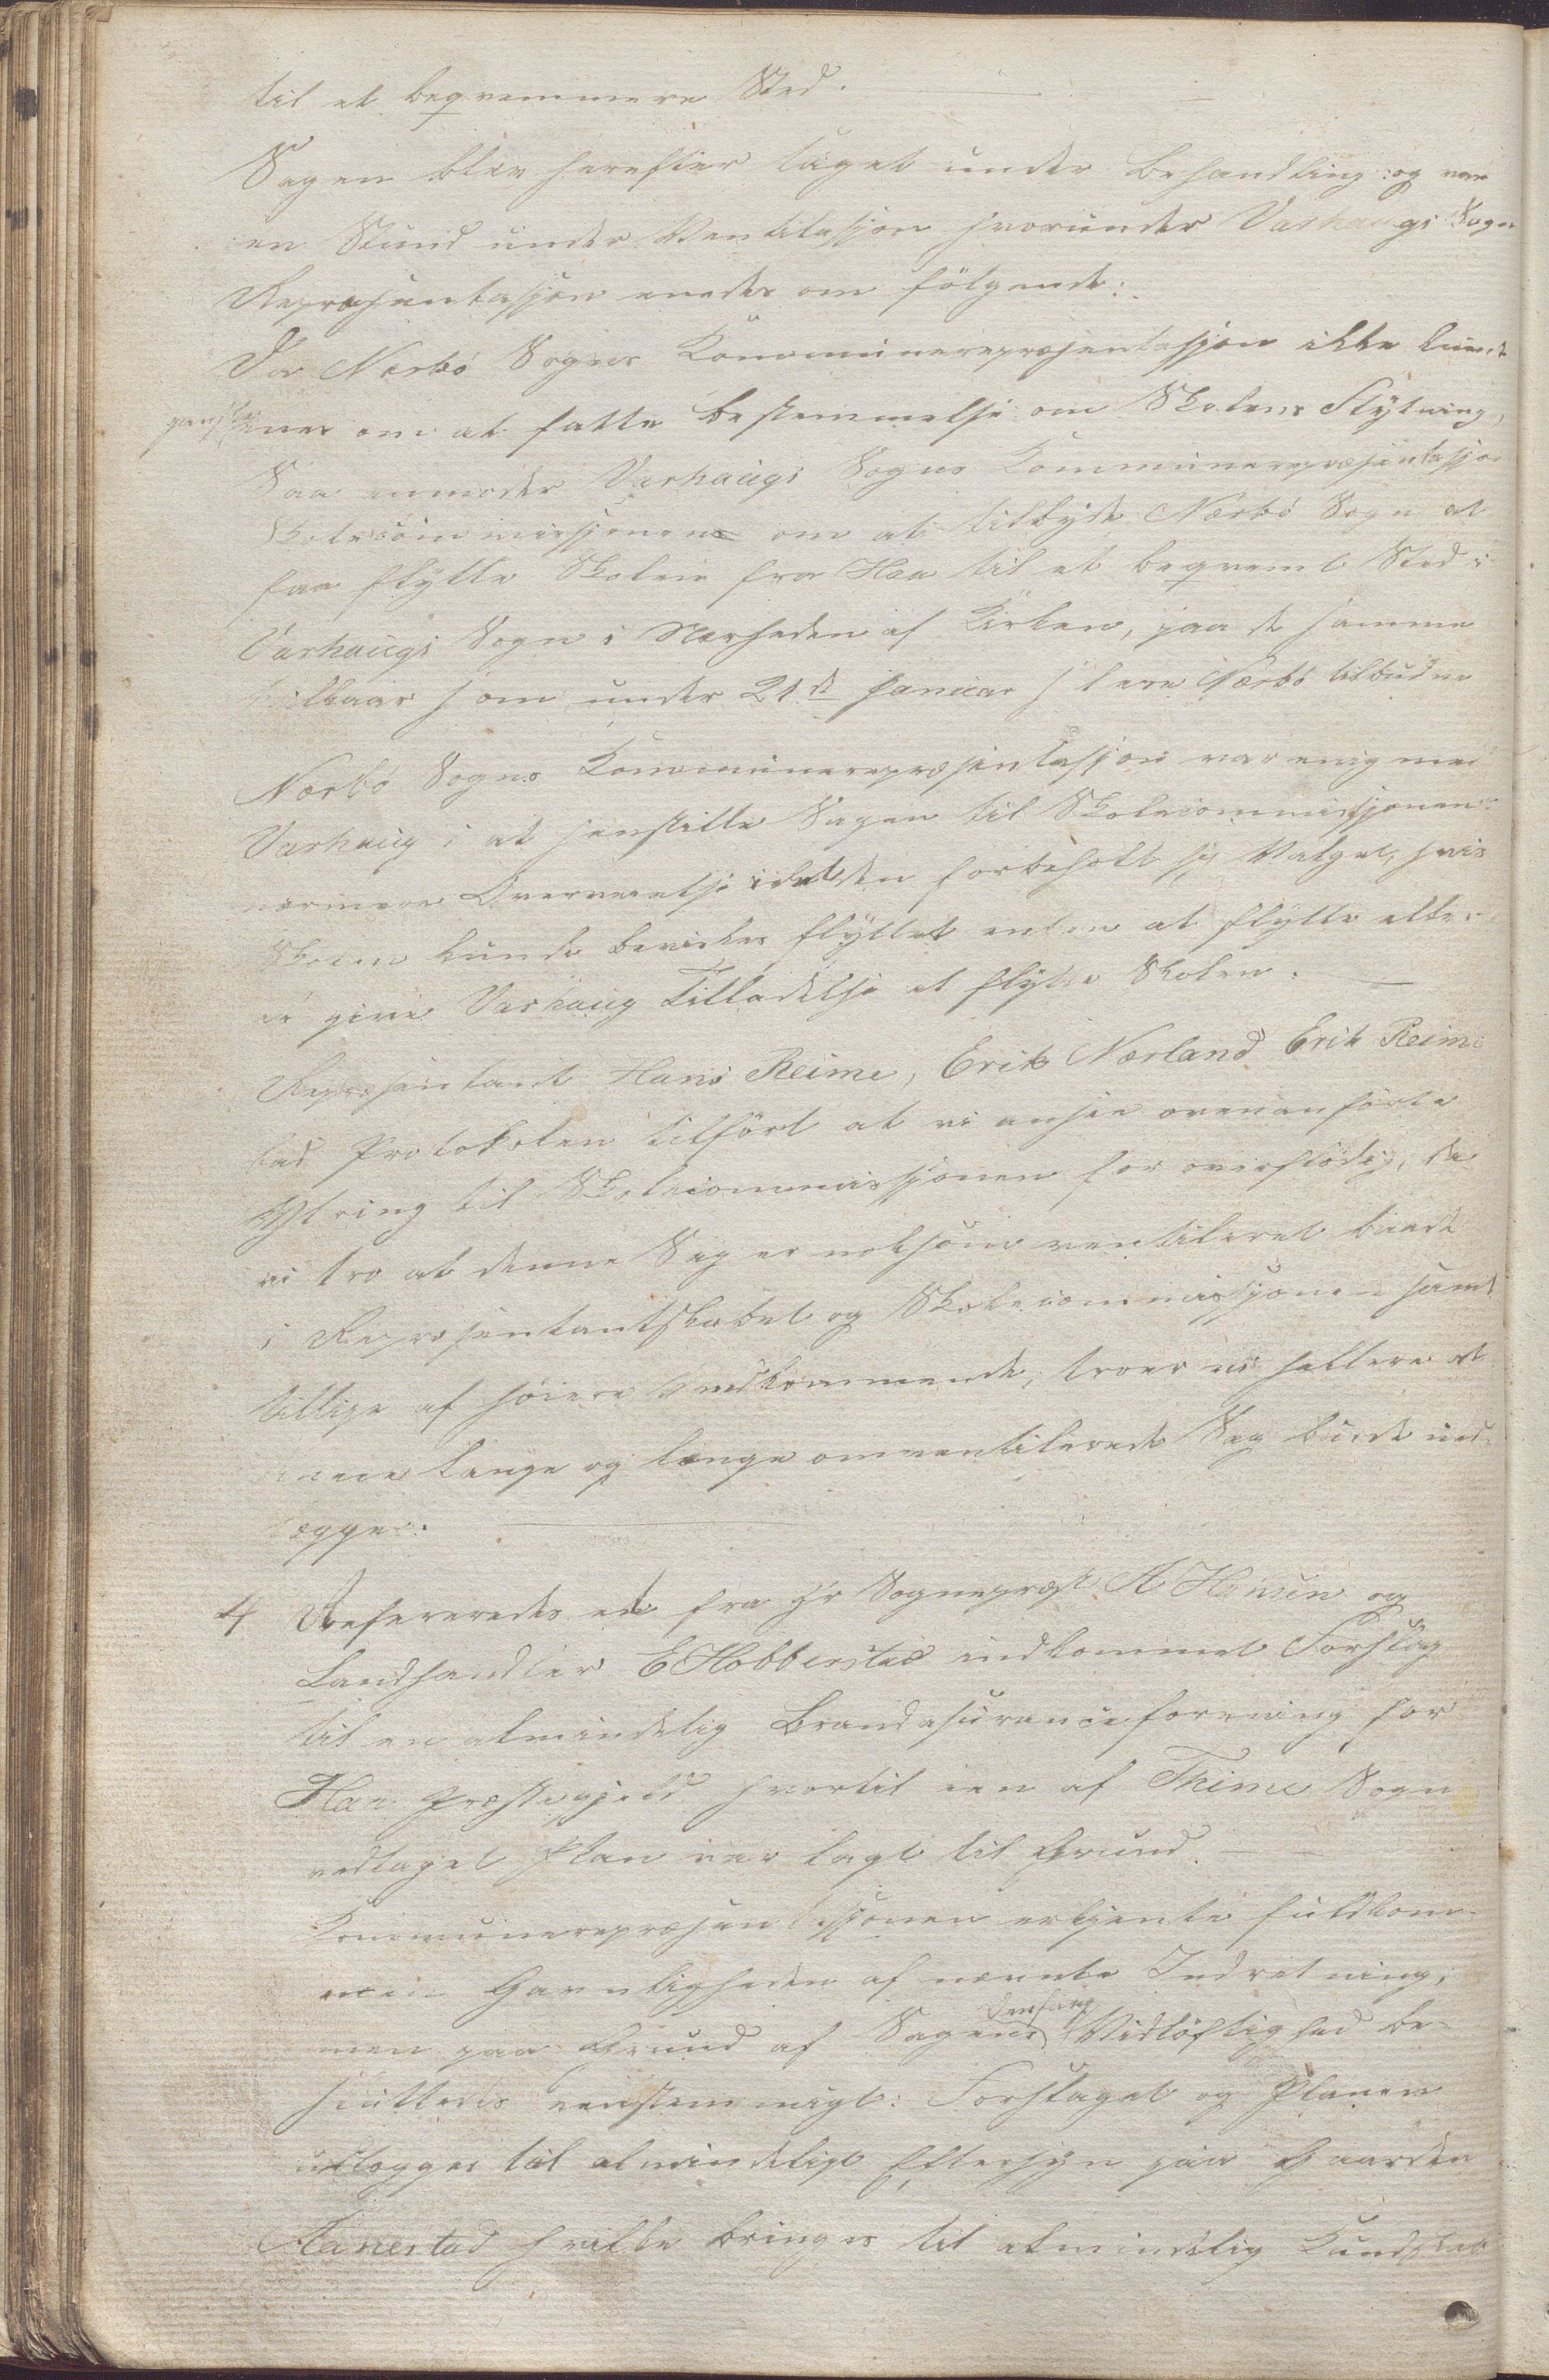 til et beqvemmere Sted.
Sagen blev herefter taget under Behandling og var
en Stund under Ventilassjon hvorunder Varhaugs Sogns
Repræsentassjon enedes om fölgende:
Da Nærbö Sogns Kommunerepræsentassjon ikke kunde
ganske enes om at fatte Bestemmelse om Skolens Flytning,
Saa anmoder Varhaugs Sogns Kommunerepræsentassjon
Skolecommissjonen om at tilbyde Nærbö Sogn at
faa flytte Skolen fra Haa til et beqvemt Sted i
Varhaugs Sogn i Nærheden af Kirken, paa de samme
Vilkaar som under 21de Januar s l ere Nærbö tilbudne
Nærbö Sogns Kommunerepræsentassjon var enig med
Varhaug i at henstille Sagen til Skolecommissjonens
nærmere Overveielse idet den forbeholt sig Valget, hvis
Skolen kunde bevirkes flyttet enten at flytte eller
at give Varhaug Tilladelse at flytte Skolen.
Repræsentant Hans Reime, Erik Nærland Erik Reime
bad Protokolen tilfört at vi ansee ovenanförte
Ytring til Skolecommissjonen for overflödig, da
vi tro at denne Sag er noksom ventileret baade
i Repræsentantskabet og Skolecommissjonen samt
tillige af höiere Vedkommende, troer vi hellere at
denne lange og længe omventilerede Sag burde ned-
lægges.
4 Refereredes et fra Hr Sognepræst A Hansen og
Landhandler E Hobberstad indkommet Forslag
til en almindelig Brandasuranceforening for
Haa Præstegjeld hvortil een af Thime Sogn
vedtaget Plan var lagt til Grund.
Kommunerepræsentassjonen erkjente fuldkom-
men Gavnligheden af nævnte Indretning,
men paa Grund af Sagens Vidlöftighed be-
sluttedes eenstemmigt: Forslaget og Planen
udlægges til almindeligt Eftersyn paa Gaarden
Aanestad hvilke bringes til almindelig Kundskab